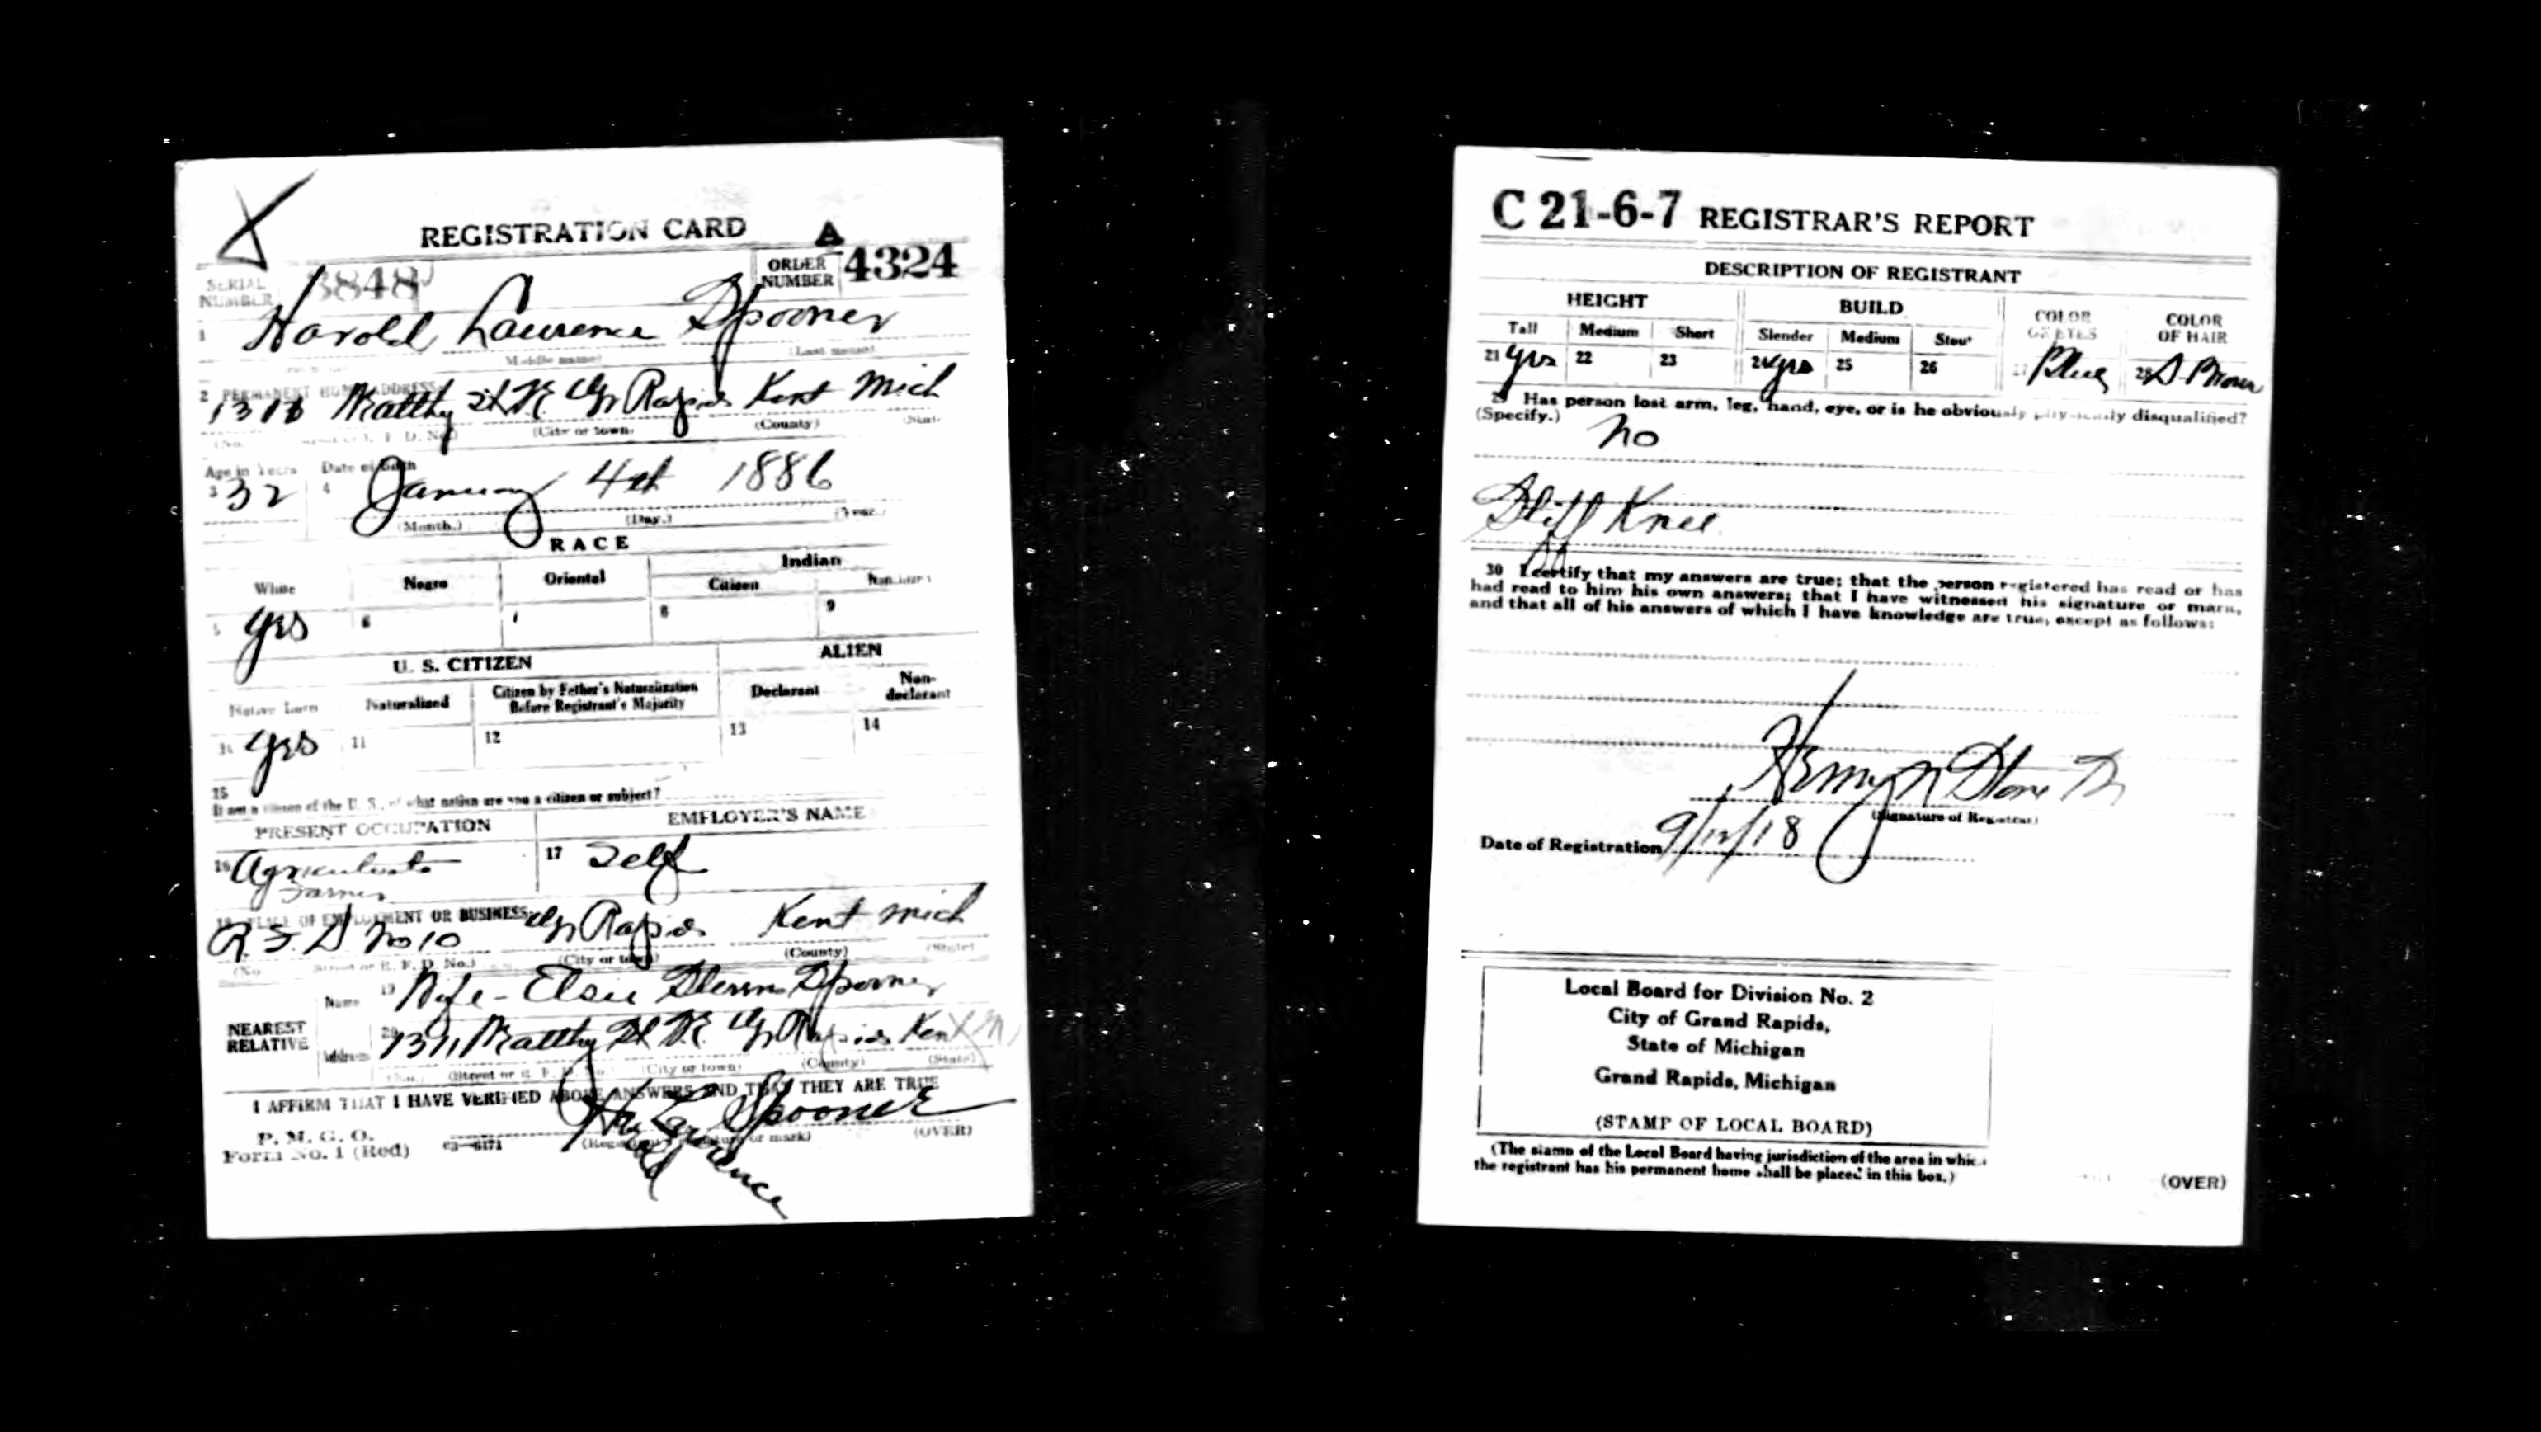 REGISTRATION CARD
SERIAL NUMBER 3848 ORDER NUMBER A 4324
1 Harold Lawrence Spooner
(Middle name) (Last name)
2 PERMANENT HOME ADDRESS
Gr Rapids Kent Mich
(No.) (City or town) (County) (State)
Age in Years Date of Birth
3 32 4 January 4th 1886
(Month.) (Day.) (Year.)
RACE
White Negro Oriental Indian
Citizen Noncitizen
5 yes 6 7 8 9
U. S. CITIZEN ALIEN
Native Born Naturalized Citizen by Father's Naturalization Before Registrant's Majority Declarant Non-declarant
10 yes 11 12 13 14
15
If not a citizen of the U. S., of what nation are you a citizen or subject?
PRESENT OCCUPATION EMPLOYER'S NAME
16 17 Self
Farmer
18 PLACE OF EMPLOYMENT OR BUSINESS
No 10 Gr Rapids Kent Mich
(No.) (Street or R. F. D. No.) (City or town) (County) (State)
NEAREST RELATIVE
Name 19 Wife - Elsie Spooner
Address 20 1311 Gr Rapids Kent M
(No.) (Street or R. F. D. No.) (City or town) (County) (State)
I AFFIRM THAT I HAVE VERIFIED ABOVE ANSWERS AND THAT THEY ARE TRUE
P. M. G. O.
Form No. 1 (Red) 03-6171 Spooner
(Registrant's signature or mark) (OVER)
Lawrence
C 21-6-7 REGISTRAR'S REPORT
DESCRIPTION OF REGISTRANT
HEIGHT BUILD COLOR OF EYES COLOR OF HAIR
Tall Medium Short Slender Medium Stout
21 yes 22 23 24 yes 25 26 27 Blue 28 D Brown
29 Has person lost arm, leg, hand, eye, or is he obviously physically disqualified?
(Specify.) no
Stiff Knee
30 I certify that my answers are true; that the person registered has read or has
had read to him his own answers; that I have witnessed his signature or mark,
and that all of his answers of which I have knowledge are true, except as follows:
(Signature of Registrar)
Date of Registration 9/12/18
Local Board for Division No. 2
City of Grand Rapids,
State of Michigan
Grand Rapids, Michigan
(STAMP OF LOCAL BOARD)
(The stamp of the Local Board having jurisdiction of the area in which
the registrant has his permanent home shall be placed in this box.)
(OVER)